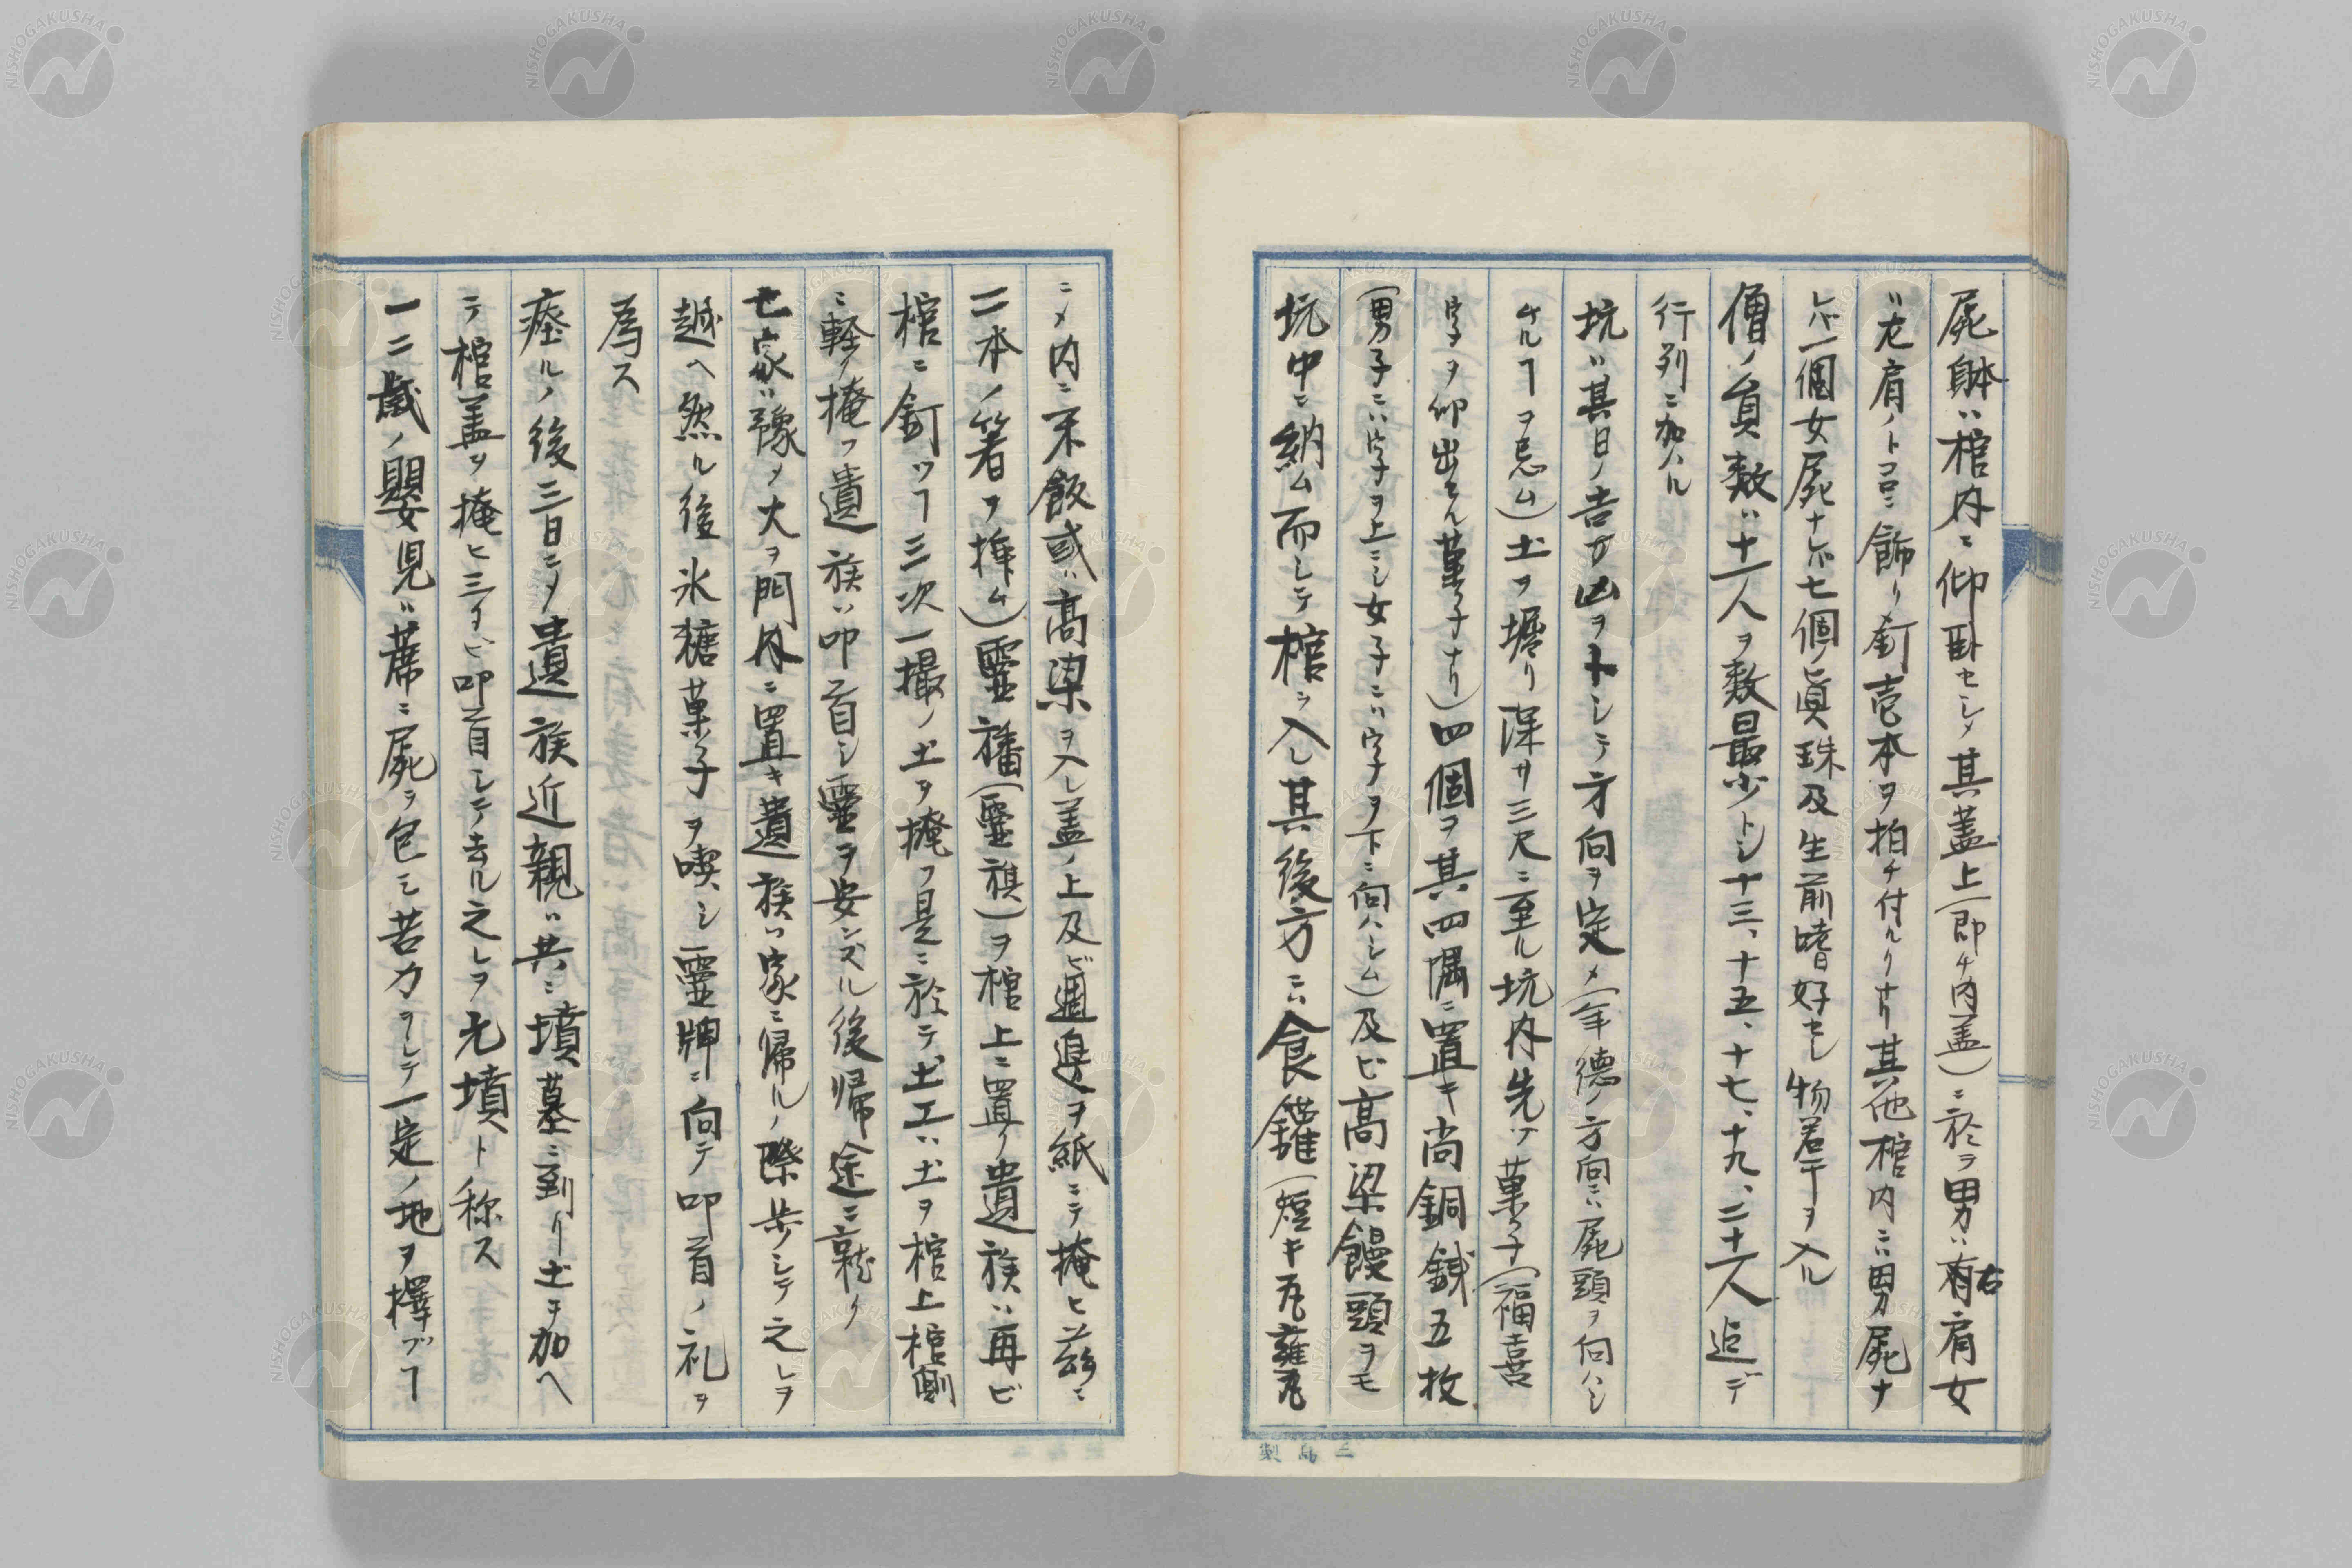 屍躰ハ棺内ニ仰臥セシメ其蓋上(即チ内蓋)ニ於テ男ハ右肩女
ハ左肩ノトコロニ飾リ釘壱本ヲ拍チ付ルリナリ其他棺内ニハ男屍ナ
レバ一個女屍ナレバ七個ノ眞珠及生前嗜好セシ物若干ヲ入ル
僧ノ員数ハ十一人ヲ数最少トシ十三、十五、十七、十九、二十一人迠デ
行列ニ加ハル
坑ハ其日ノ吉方凶ヲトシテ方向ヲ定メ(年徳ノ方向ニハ屍頭ヲ向ハシ
ケルヿヲ忌ム)土ヲ堀リ深サ三尺ニ至ル坑内先ヅ菓子(福喜
字ヲ仰出セル菓子ナリ)四個ヲ其四隅ニ置キ尚銅銭五枚
(男子ニハ字ヲ上ニシ女子ニハ字ヲ下ニ向ハシム)及ビ高梁饅頭ヲモ
坑中ニ納ム而シテ棺ヲ入レ其後方ニハ食鑵(短キ瓦甕瓦
ニメ内ニ米飯或ハ高梁ヲ入レ蓋ノ上及ビ週邉ヲ紙ニテ掩ヒ茲ニ
二本ノ箸ヲ挿ム)靈旛(靈旗)ヲ棺上ニ置リ遺族ハ再ビ
棺ニ釘ツヿ三次一撮ノ土ヲ掩フ是ニ於テ土工ハ土ヲ棺上棺側
ニ軽ク掩フ遺族ハ叩首シ靈ヲ安ンズル後帰途ニ就ク
七家ハ豫メ火ヲ門内ニ置キ遺族ハ家ニ帰ルノ際歩シテ之レヲ
越ヘ然ル後氷糖菓子ヲ喫シ靈牌ニ向テ叩首ノ礼ヲ
為ス
瘞ルノ後三日ニメ遺族近親ハ共ニ墳墓ニ到リ土ヲ加ヘ
テ棺蓋ヲ掩ヒ三タビ叩首シテ去ル之レヲ允墳ト称ス
一二歳ノ嬰児ハ蓆ニ屍ヲ包ミ苦力ヲシテ一定ノ地ヲ擇ブヿ
三島製